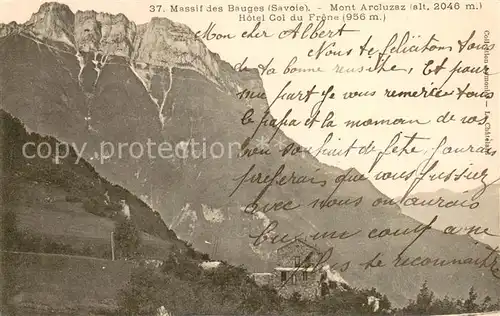 37. Massif des Bauges (Savoie). - Mont Arcluzaz (alt. 2046 m.)
Hôtel Col du Frêne (956 m.)
Mon cher Albert
Nous te félicitons tous
de ta bonne reusite, Et pour
ma part je vous remercie tous
le papa et la maman de vos
bon souhait de fete, j'aurais
preferais que vous fussiez
avec nous on aurais
bu un coup a ne
plus se reconnaitre
Collection Grimotal - Châtelard
cparama
cparama